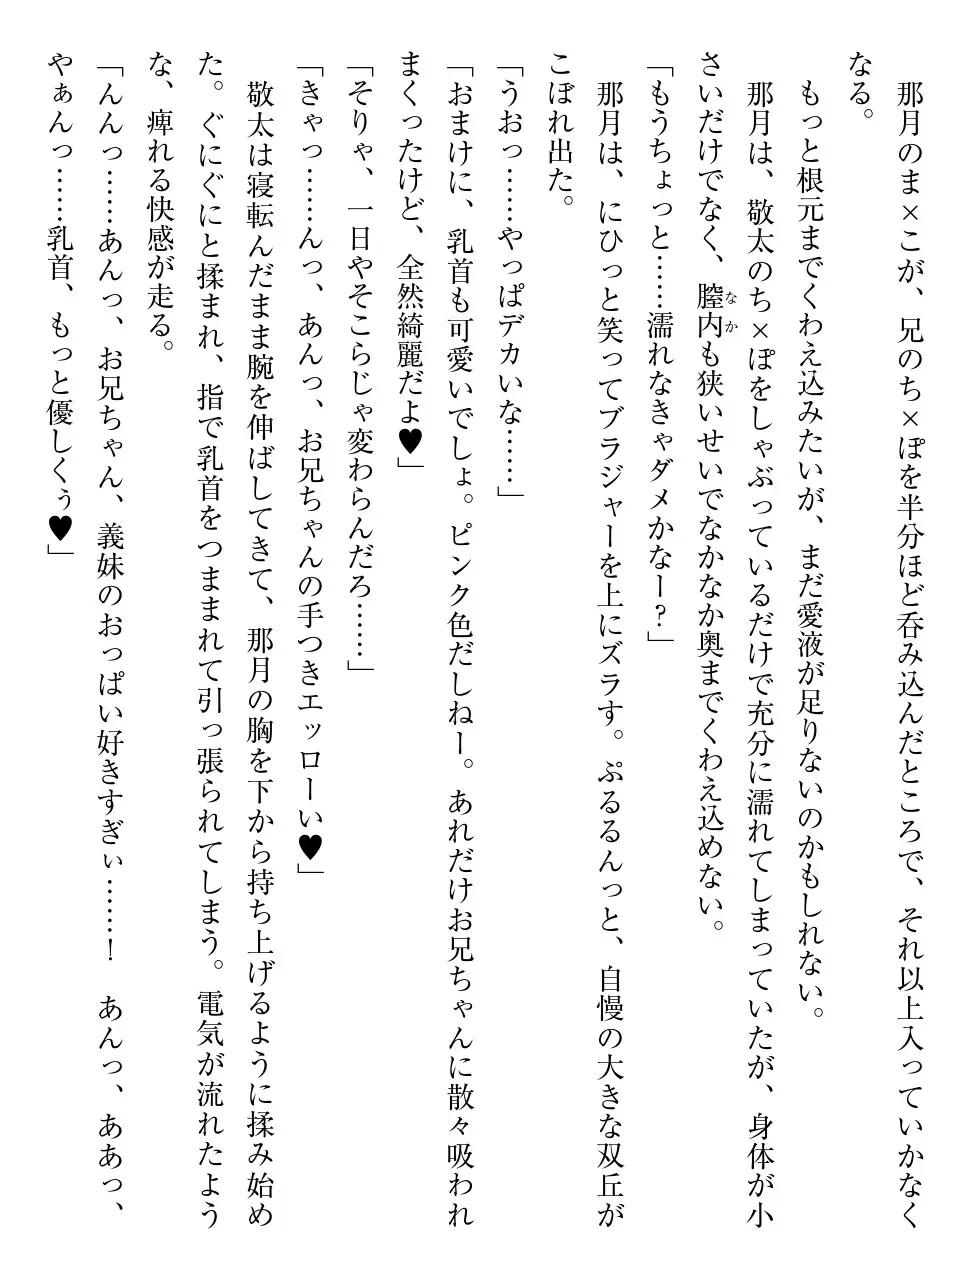 那月のま×こが、兄のち×ぽを半分ほど呑み込んだところで、それ以上入っていかなく
なる。
もっと根元までくわえ込みたいが、まだ愛液が足りないのかもしれない。
那月は、敬太のち×ぽをしゃぶっているだけで充分に濡れてしまっていたが、身体が小
さいだけでなく、膣内なかも狭いせいでなかなか奥までくわえ込めない。
「もうちょっと……濡れなきゃダメかなー？」
那月は、にひっと笑ってブラジャーを上にズラす。ぷるるんっと、自慢の大きな双丘が
こぼれ出た。
「うおっ……やっぱデカいな……」
「おまけに、乳首も可愛いでしょ。ピンク色だしねー。あれだけお兄ちゃんに散々吸われ
まくったけど、全然綺麗だよ♥」
「そりゃ、一日やそこらじゃ変わらんだろ……」
「きゃっ……んっ、あんっ、お兄ちゃんの手つきエッローい♥」
敬太は寝転んだまま腕を伸ばしてきて、那月の胸を下から持ち上げるように揉み始め
た。ぐにぐにと揉まれ、指で乳首をつままれて引っ張られてしまう。電気が流れたよう
な、痺れる快感が走る。
「んんっ……あんっ、お兄ちゃん、義妹のおっぱい好きすぎぃ……！　あんっ、ああっ、
やぁんっ……乳首、もっと優しくぅ♥」